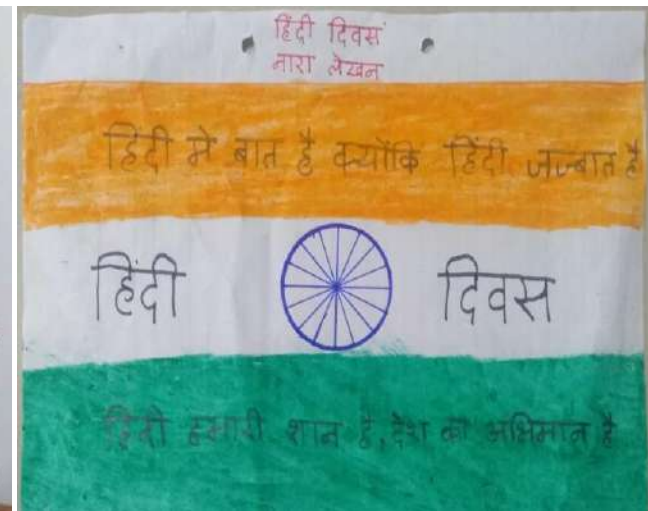 हिंदी दिवस
नारा लेखन
हिंदी मे बात है क्योंकि हिंदी जज्बात है
हिंदी दिवस
हिंदी हमारी शान है, देश का अभिमान है